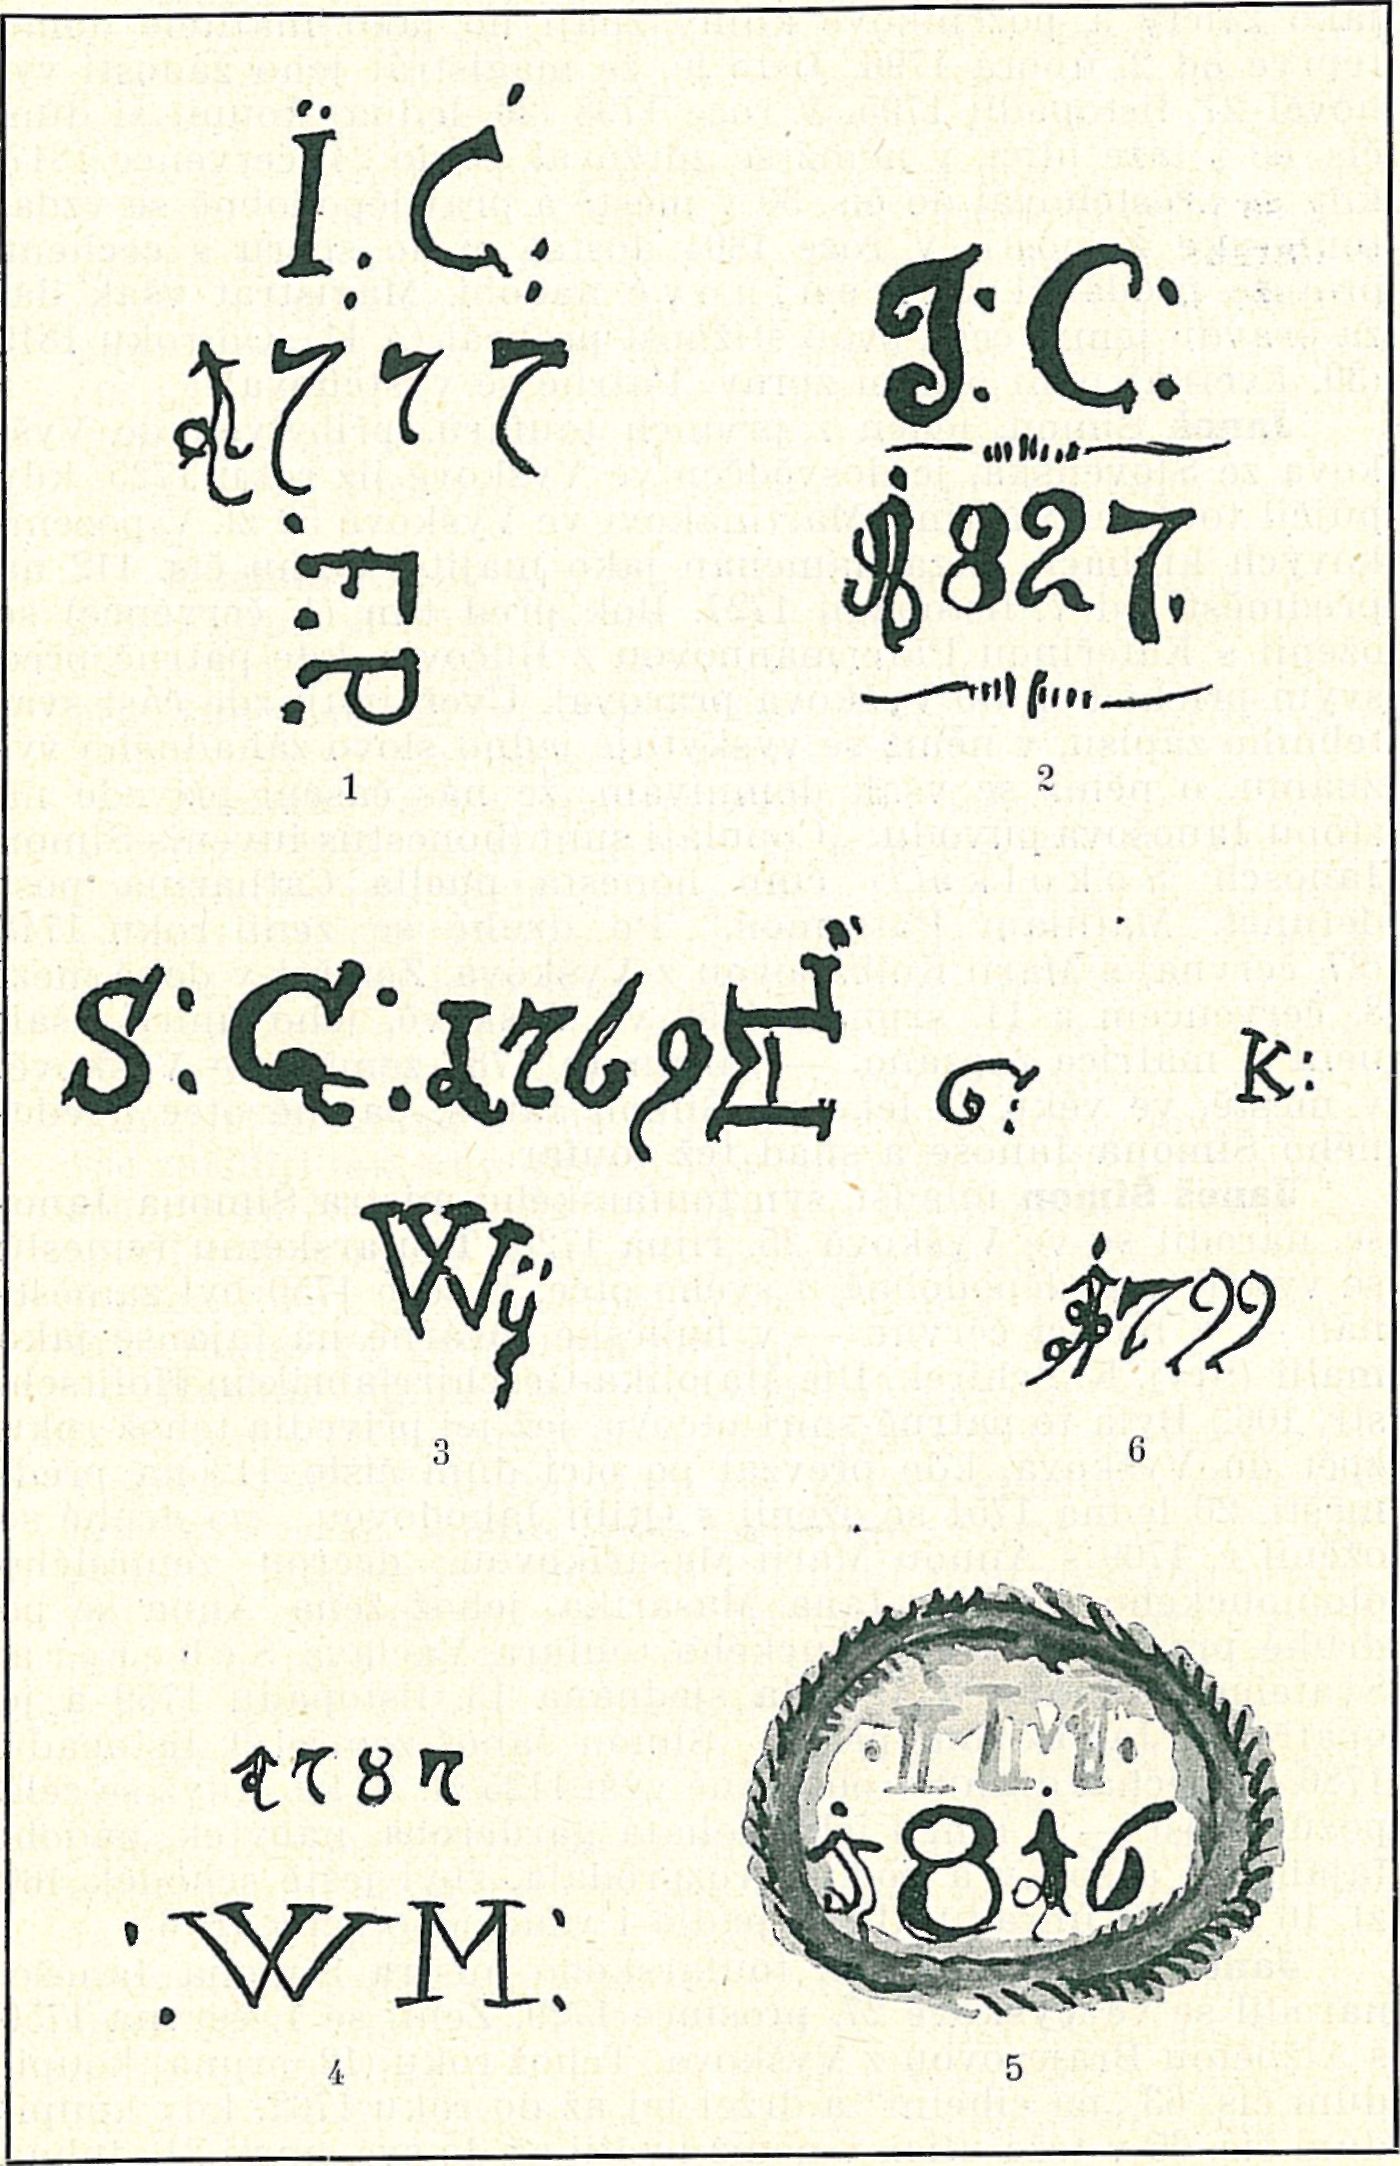 Ï. C:
1777
:F:P
1
J: C:
1827.
2
S: C: 1769
Wÿ
3
G: K:
1799
6
1787
:WM:
4
I M
1816
5